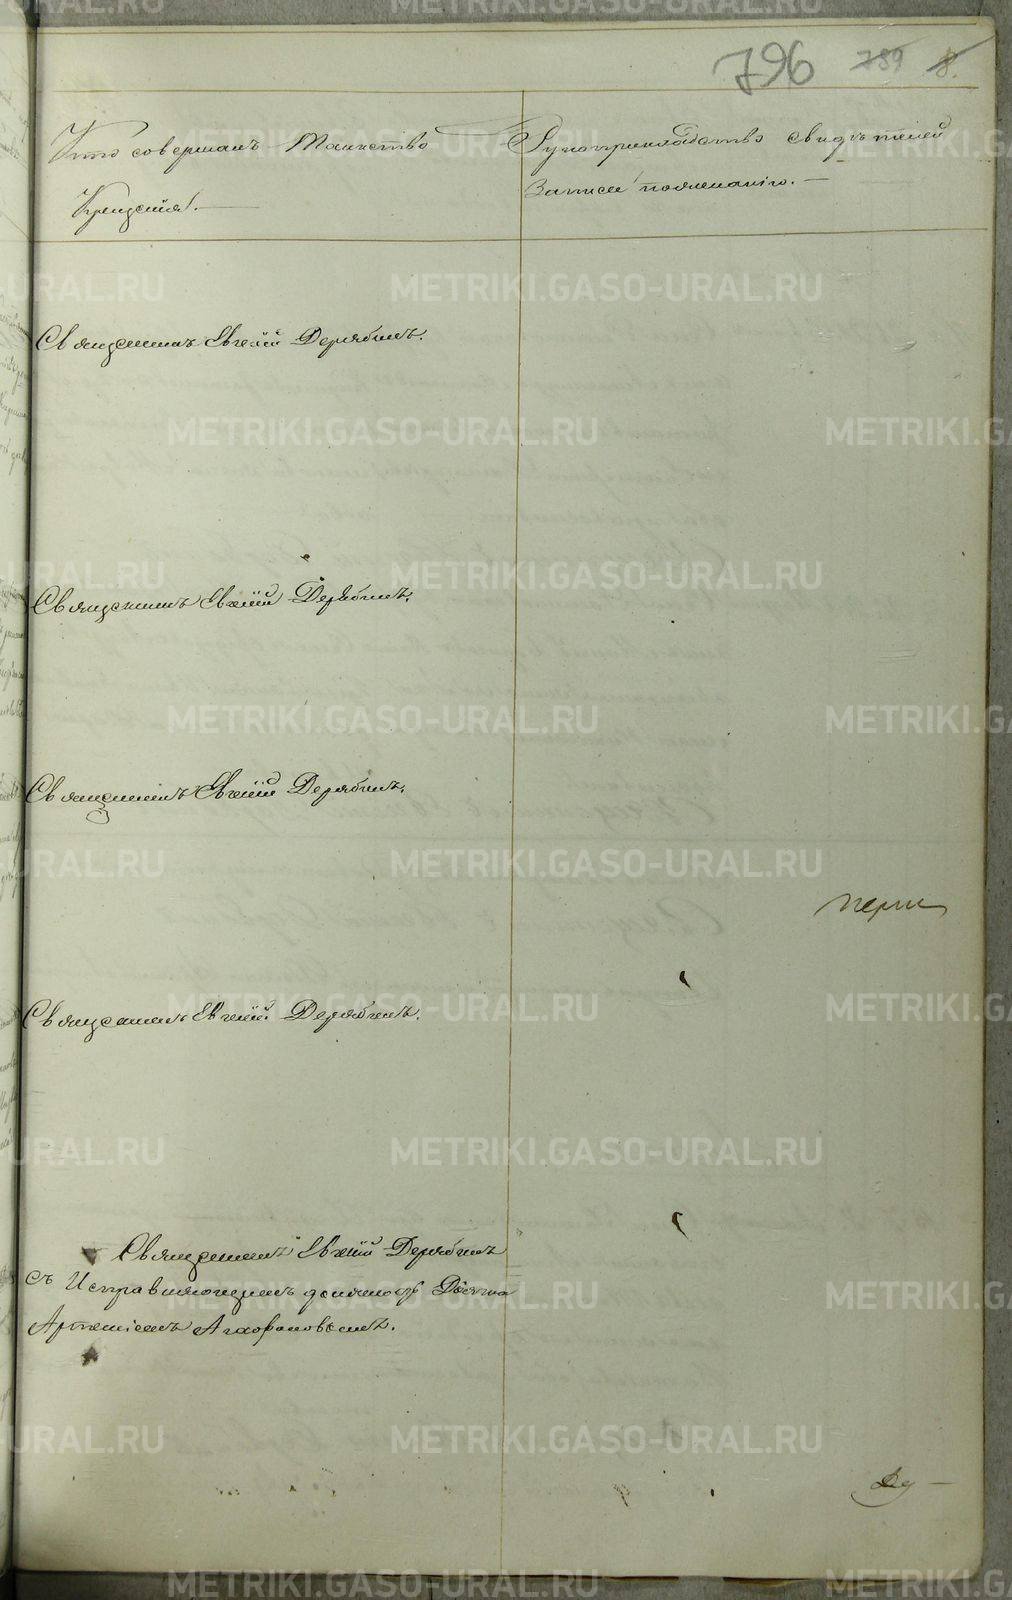 796 789 8.
Кто совершалъ Таинство
Крещенія.
Рукоприкладство свидѣтелей
записи по желанію.
Священникъ Евгеній Дерябинъ.
Священникъ Евгеній Дерябинъ.
Священникъ Евгеній Дерябинъ.
Священникъ Евгеній Дерябинъ.
Священникъ Евгеній Дерябинъ
съ Исправляющимъ должность Дьячка
Артеміемъ Агафоновымъ.
METRIKI.GASO-URAL.RU